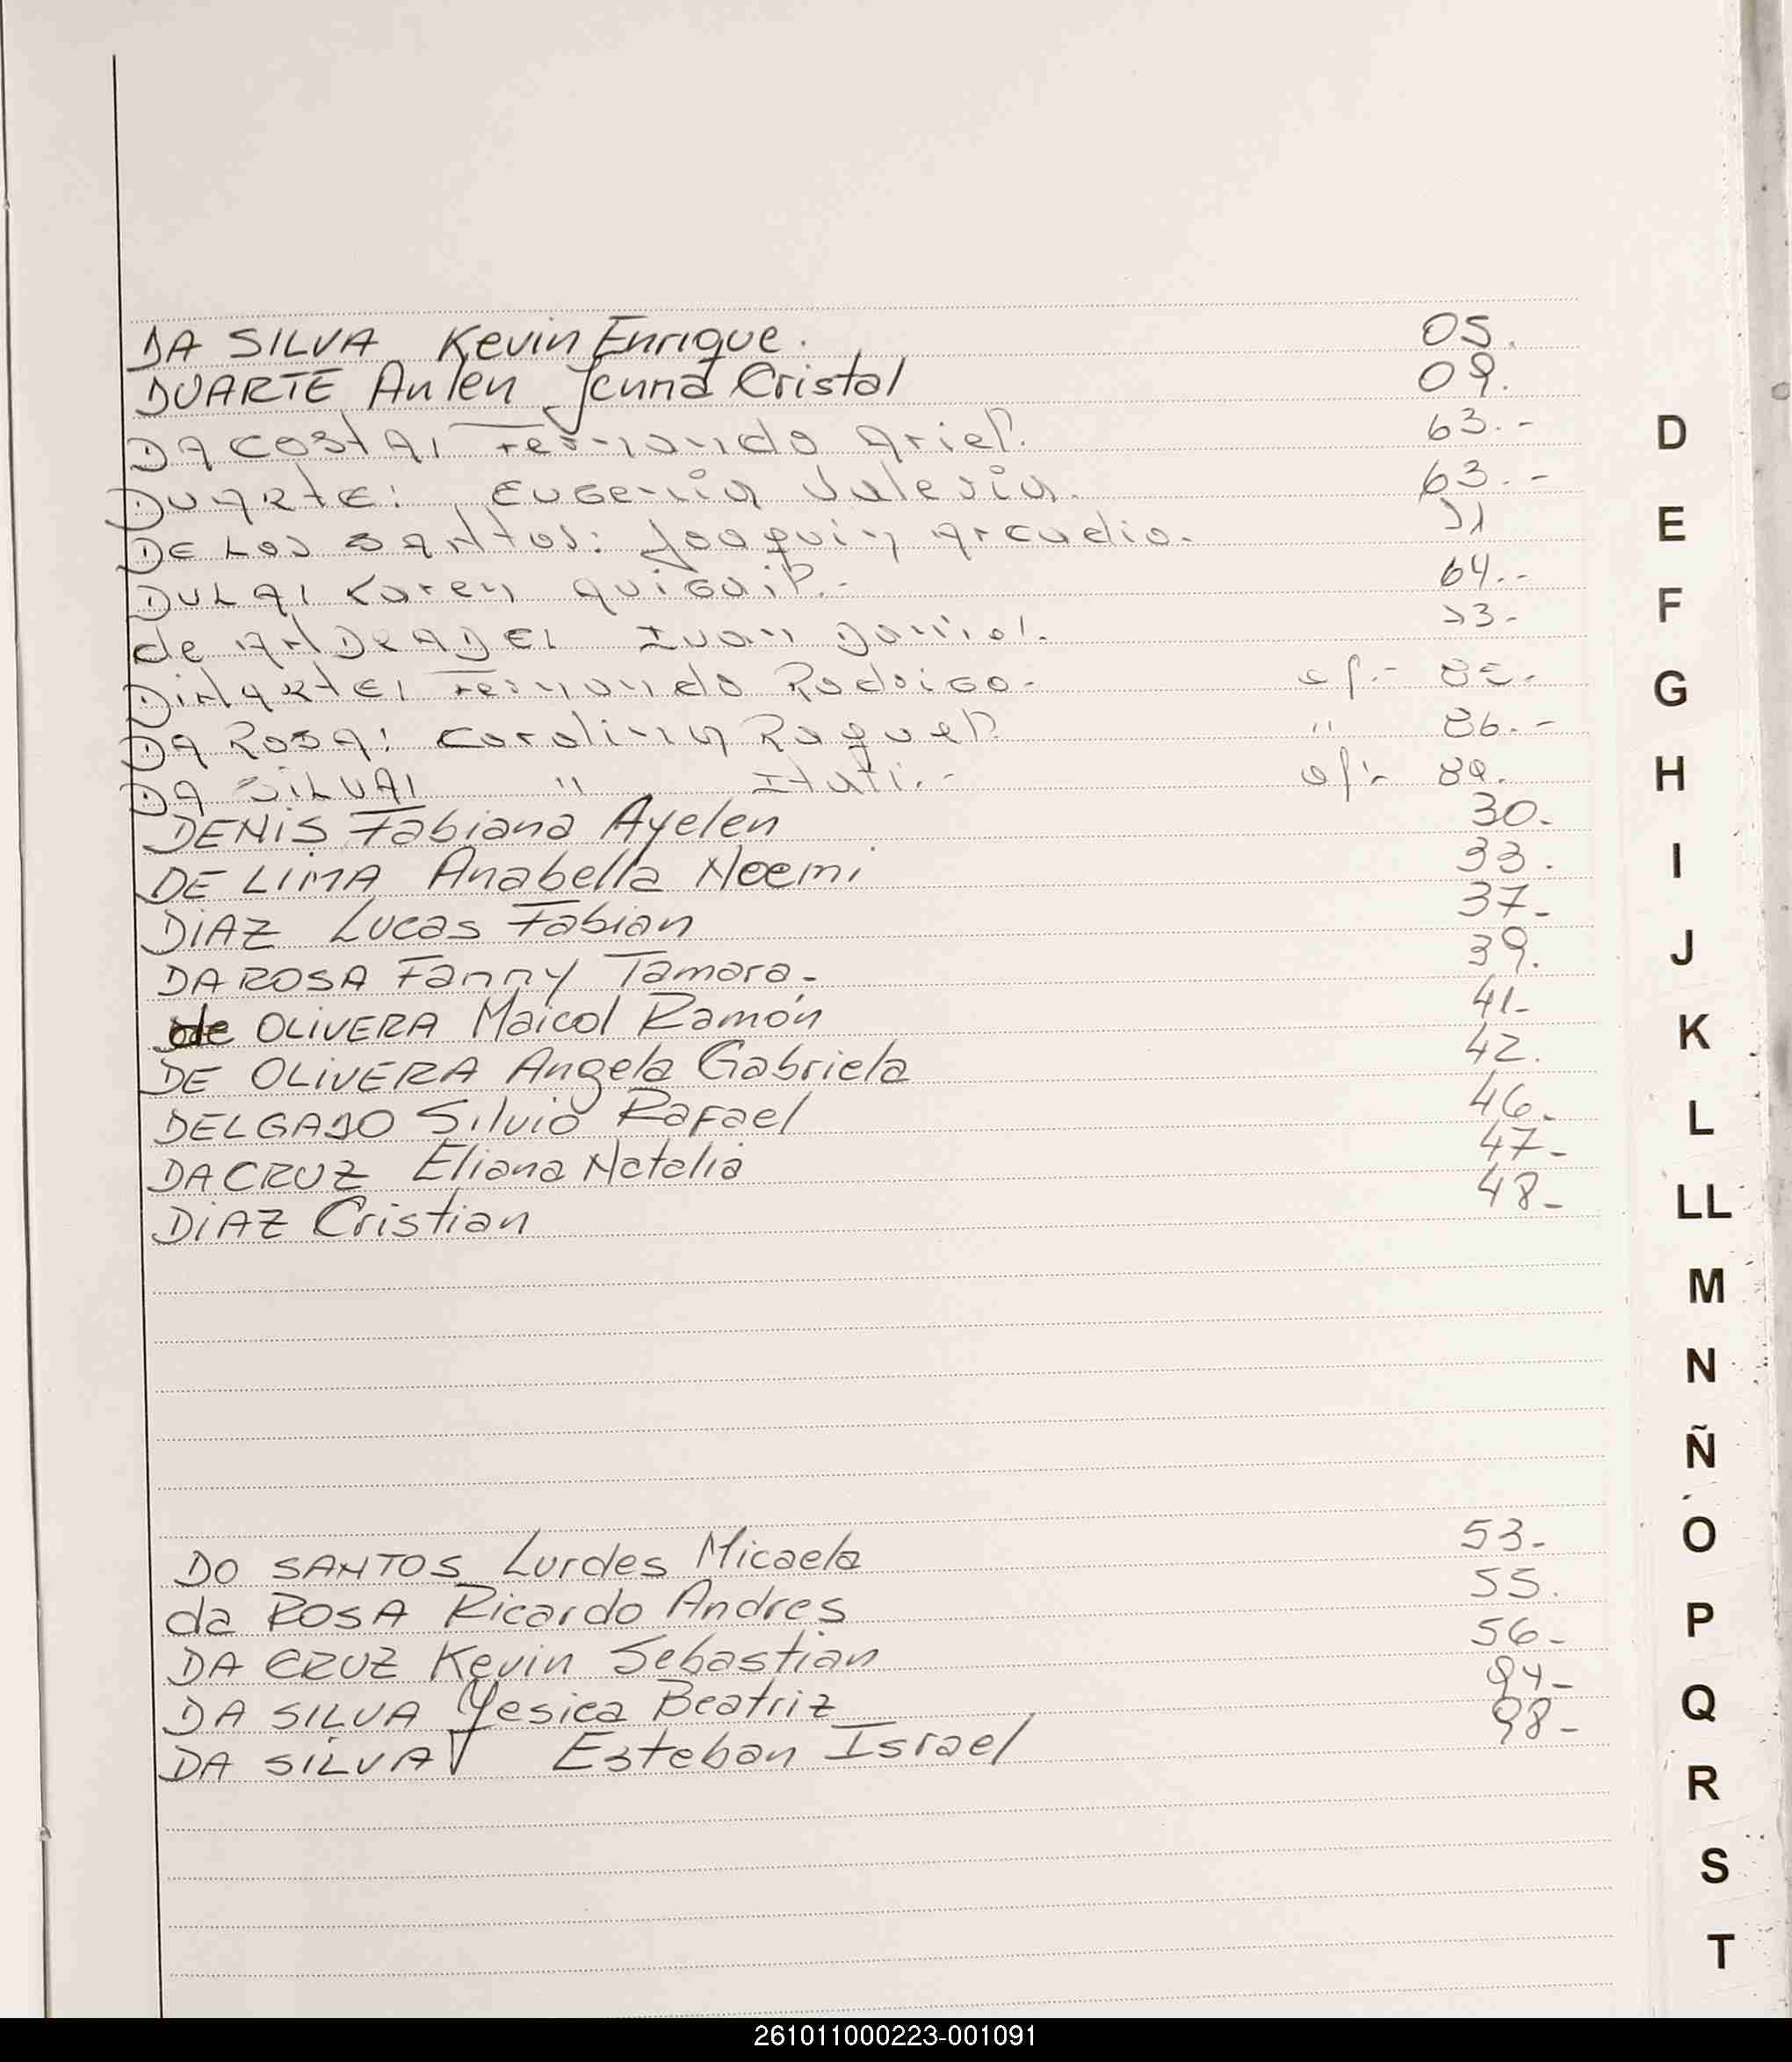 DA SILVA Kevin Enrique. 05.
DUARTE Anlen Jenna Cristal 09.
DA COSTA: Fernando Ariel. 63.-
DUARTE: Eugenia Valeria. 63.-
DE LOS SANTOS: Joaquin Arcadio.
Karen 64.-
de ANDRADE: Ivan Daniel.
Fernando Rodrigo.-
DA ROSA: Carolina Raquel. " 86.-
DA SILVA: " Itati.-
DENIS Fabiana Ayelen 30.
DE LIMA Anabella Noemi 33.
DIAZ Lucas Fabian 37-
DA ROSA Fanny Tamara- 39.
de OLIVERA Maicol Ramón 41-
DE OLIVERA Angela Gabriela 42.
DELGADO Silvio Rafael 46-
DA CRUZ Eliana Natalia 47-
DIAZ Cristian 48-
DO SANTOS Lurdes Micaela 53-
da ROSA Ricardo Andres 55.
DA CRUZ Kevin Sebastian 56-
DA SILVA Yesica Beatriz 94-
DA SILVA Esteban Israel 98-
D
E
F
G
H
I
J
K
L
LL
M
N
Ñ
O
P
Q
R
S
T
261011000223-001091